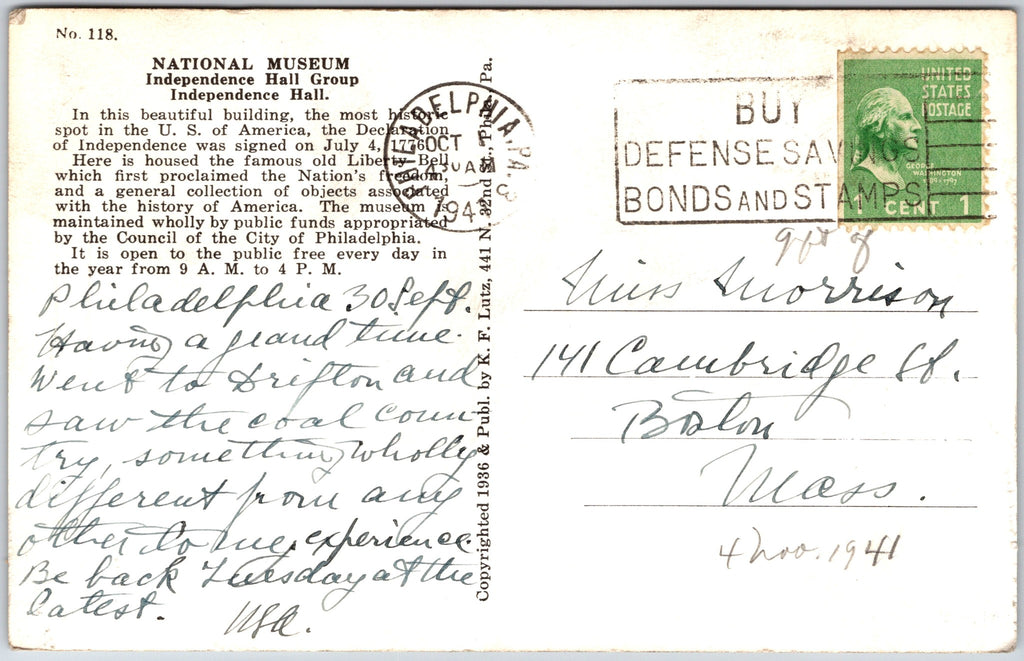 No. 118.
NATIONAL MUSEUM
Independence Hall Group
Independence Hall.
In this beautiful building, the most historic
spot in the U. S. of America, the Declaration
of Independence was signed on July 4, 1776.
Here is housed the famous old Liberty Bell
which first proclaimed the Nation's freedom,
and a general collection of objects associated
with the history of America. The museum is
maintained wholly by public funds appropriated
by the Council of the City of Philadelphia.
It is open to the public free every day in
the year from 9 A. M. to 4 P. M.
Philadelphia 30 Sept.
Having a grand time.
Went to Drifton and
saw the coal coun-
try, something wholly
different from any
other to me, experience.
Be back Tuesday at the
latest.
Copyrighted 1936 & Publ. by K. F. Lutz, 441 N. 32nd St., Phila., Pa.
PHILADELPHIA, PA.
OCT
AM
194
BUY
DEFENSE SAVINGS
BONDS AND STAMPS
UNITED
STATES
POSTAGE
GEORGE
WASHINGTON
1 CENT 1
gift of
Miss Morrison
141 Cambridge St.
Boston
Mass.
4 Nov. 1941